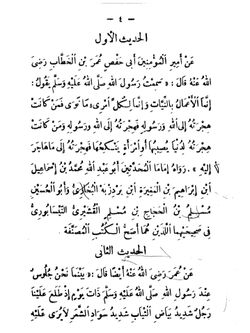 — ٤ —
الحديث الأول
عَنْ أَمِيرِ الْمُؤْمِنِينَ أَبِي حَفْصٍ عُمَرَ بْنِ الْخَطَّابِ رَضِيَ
اللهُ عَنْهُ قَالَ : « سَمِعْتُ رَسُولَ اللهِ صَلَّى اللهُ عَلَيْهِ وَسَلَّمَ يَقُولُ :
إِنَّمَا الْأَعْمَالُ بِالنِّيَّاتِ وَإِنَّمَا لِكُلِّ امْرِىءٍ مَا نَوَى فَمَنْ كَانَتْ
هِجْرَتُهُ إِلَى اللهِ وَرَسُولِهِ فَهِجْرَتُهُ إِلَى اللهِ وَرَسُولِهِ وَمَنْ كَانَتْ
هِجْرَتُهُ لِدُنْيَا يُصِيبُهَا أَوِ امْرَأَةٍ يَنْكِحُهَا فَهِجْرَتُهُ إِلَى مَا هَاجَرَ
إِلَيْهِ » . رَوَاهُ إِمَامَا الْمُحَدِّثِينَ أَبُو عَبْدِ اللهِ مُحَمَّدُ بْنُ إِسْمَاعِيلَ
ابْنِ إِبْرَاهِيمَ بْنِ الْمُغِيرَةِ بْنِ بَرْدِزْبَهْ الْبُخَارِيُّ وَأَبُو الْحُسَيْنِ
مُسْلِمُ بْنُ الْحَجَّاجِ بْنِ مُسْلِمٍ الْقُشَيْرِيُّ النَّيْسَابُورِيُّ
فِي صَحِيحَيْهِمَا اللَّذَيْنِ هُمَا أَصَحُّ الْكُتُبِ الْمُصَنَّفَةِ
الحديث الثانى
عَنْ عُمَرَ رَضِيَ اللهُ عَنْهُ أَيْضًا قَالَ : « بَيْنَمَا نَحْنُ جُلُوسٌ
عِنْدَ رَسُولِ اللهِ صَلَّى اللهُ عَلَيْهِ وَسَلَّمَ ذَاتَ يَوْمٍ إِذْ طَلَعَ عَلَيْنَا
رَجُلٌ شَدِيدُ بَيَاضِ الثِّيَابِ شَدِيدُ سَوَادِ الشَّعَرِ لَا يُرَى عَلَيْهِ